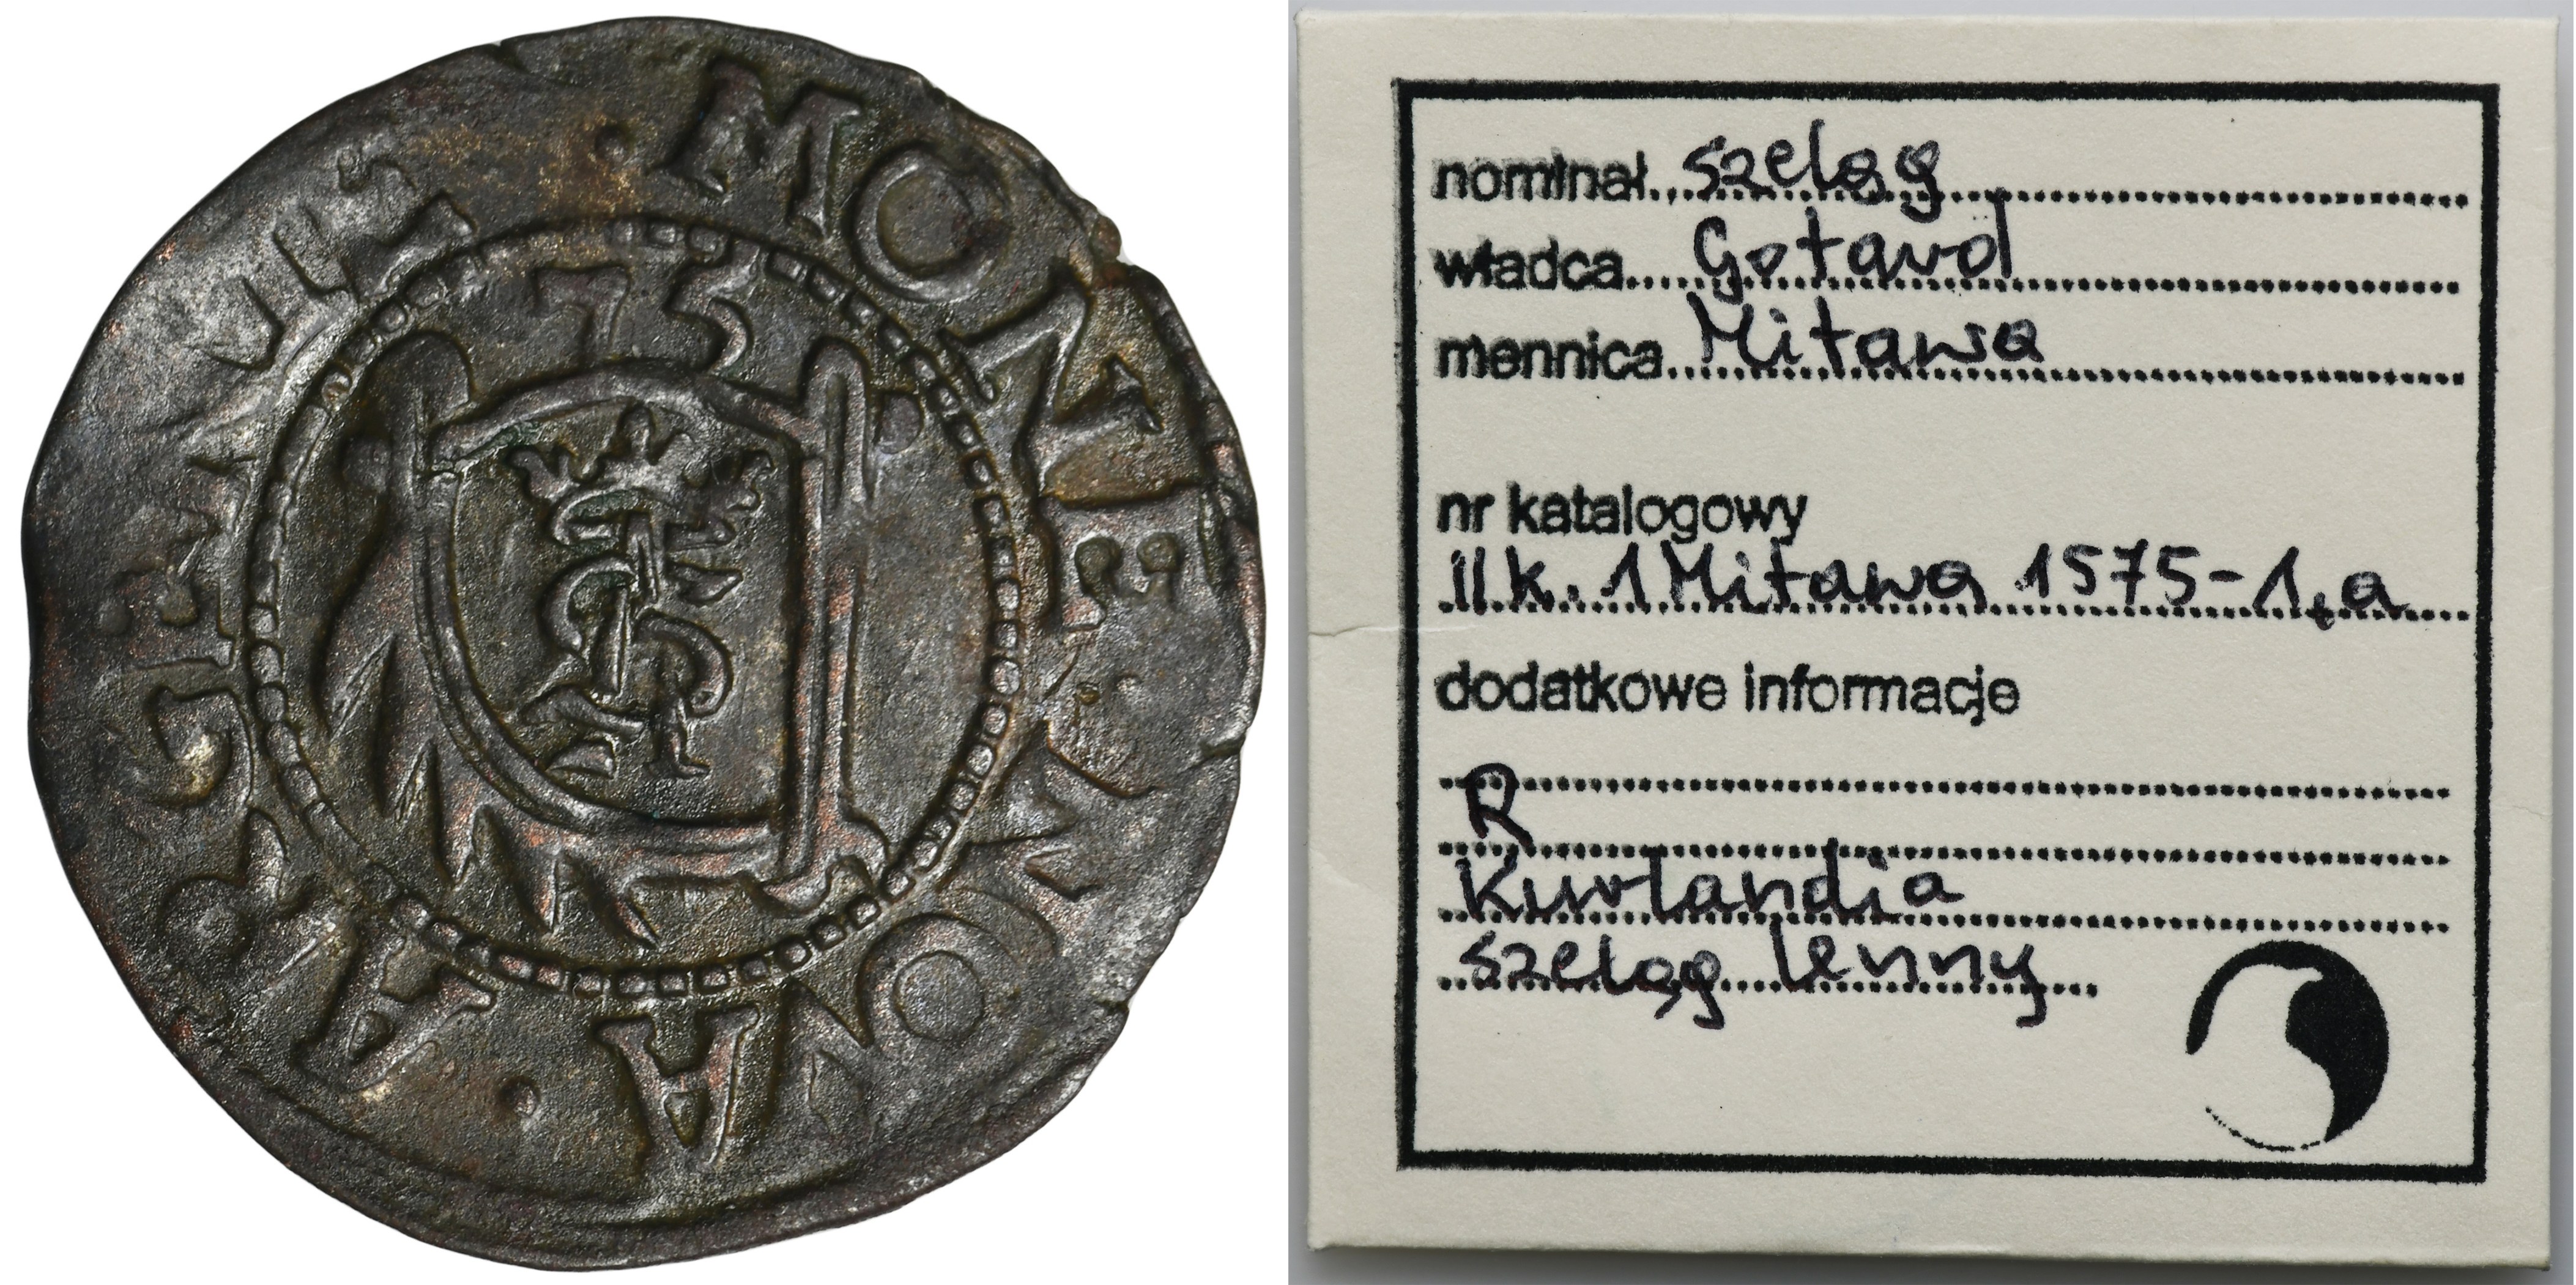 75
nominał szeląg
władca Gotard
mennica Mitawa
nr katalogowy
II k. 1 Mitawa 1575-1,a
dodatkowe informacje
R
Kurlandia
szeląg lenny